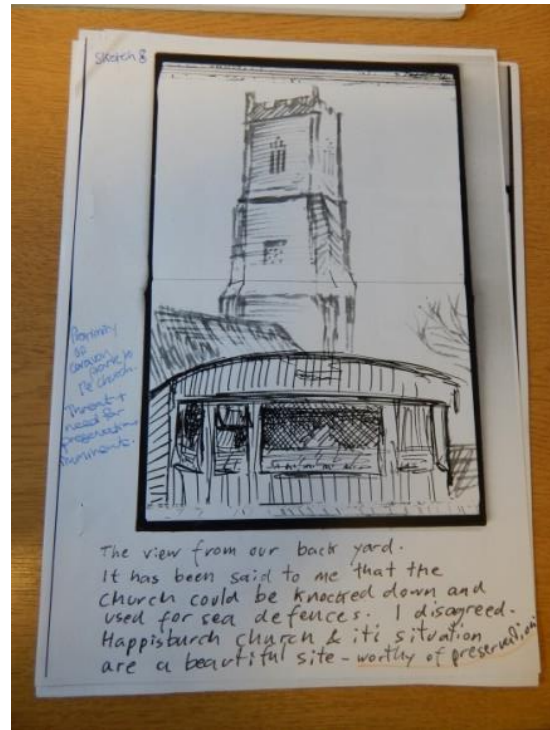 Sketch 8
Proximity
of
caravan
park to
the church.
Threat &
need for
preservation
imminent.
The view from our back yard.
It has been said to me that the
church could be knocked down and
used for sea defences. I disagreed.
Happisburgh church & its situation
are a beautiful site - worthy of preservation